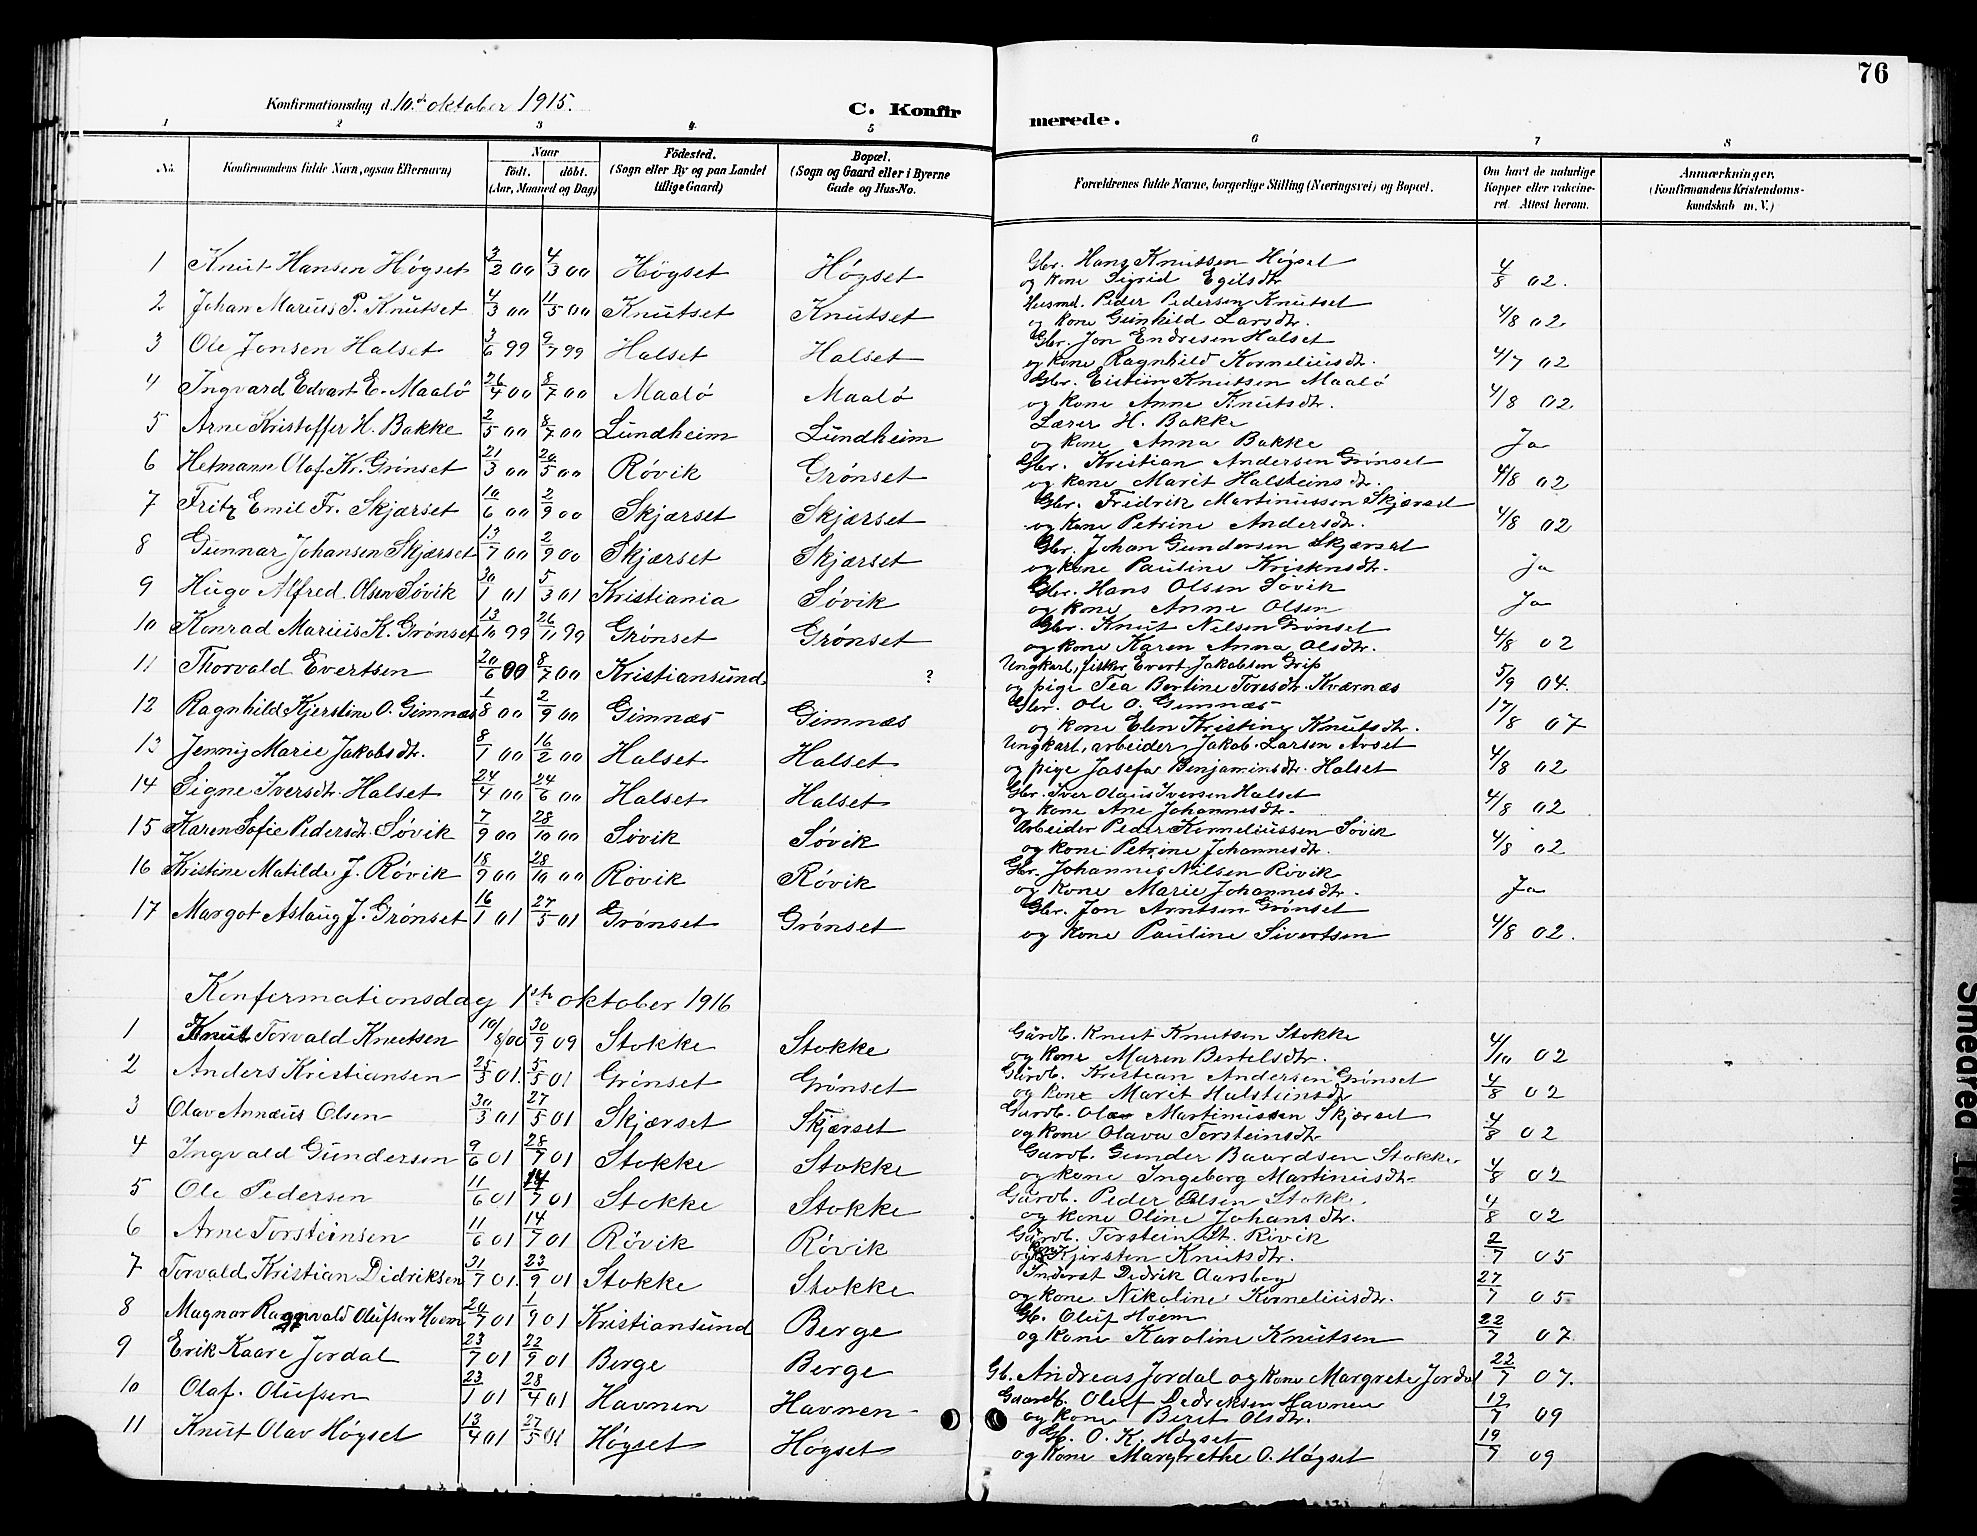 76
Konfirmationsdag d. 10.de oktober 1915.
C. Konfirmerede.
1 2 3 4 5 6 7 8
No. Konfirmandens fulde Navn, ogsaa Efternavn) Naar födt. döbt. (Aar, Maaned og Dag) Födested. (Sogn eller By og paa Landet tillige Gaard) Bopæl. (Sogn og Gaard eller i Byerne Gade og Hus-No. Forældrenes fulde Navne, borgerlige Stilling (Næringsvei) og Bopæl. Om havt de naturlige Kopper eller vakcineret. Attest herom. Anmærkninger. (Konfirmandens Kristendomskundskab m. V.)
1 Knut Hansen Høgset 3/2 00 4/3 00 Høgset Høgset Gbr. Hans Knutsen Høgset
og kone Sigrid Egilsdtr 4/8 02.
2 Johan Marius P. Knutset 4/3 00 11/5 00 Knutset Knutset Husmd. Peder Pedersen Knutset
og kone Gunhild Larsdtr. 4/8 02
3 Ole Jonsen Halset 3/6 99 9/7 99 Halset Halset Gbr. Jon Endresen Halset
og kone Ragnhild Korneliusdtr. 4/7 02
4 Ingvard Edvart E. Maalö 26/4 00 8/7 00 Maalö Maalö Gbr. Eistein Knutsen Maalö
og kone Anne Knutsdtr. 4/8 02
5 Arne Kristoffer H. Bakke 2/5 00 8/7 00 Lundheim Lundheim Lærer H. Bakke
og kone Anna Bakke Ja
6 Hermann Olaf Kr. Grønset 21/3 00 20/5 00 Røvik Grønset Gbr. Kristian Andersen Grønset
og kone Marit Halsteinsdtr. 4/8 02
7 Fritz Emil Fr. Skjærset 10/6 00 2/9 00 Skjærset Skjærset Gbr. Fridrik Martinussen Skjærset
og kone Petrine Andersdtr. 4/8 02
8 Gunnar Johansen Skjærset 13/7 00 2/9 00 Skjærset Skjærset Gbr. Johan Gundersen Skjærset
og kone Pauline Kristensdtr. ja
9 Hugo Alfred. Olsen Søvik 30/1 01 5/3 01 Kristiania Søvik Gbr. Hans Olsen Søvik
og kone Anne Olsen Ja
10 Konrad Marius K. Grønset 13/10 99 26/11 99 Grønset Grønset Gbr. Knut Nilsen Grønset
og kone Karen Anna Olsdtr. 4/8 02
11 Thorvald Evertsen 20/6 00 8/7 00 Kristiansund ? Ungkarl, fisker Evert Jakobsen Grip
og pige Tea Bertine Toresdtr. Kværnæs 5/9 04.
12 Ragnhild Kjerstine O. Gimnæs 1/8 00 2/9 00 Gimnæs Gimnæs Gbr. Ole O. Gimnæs
og kone Elen Kristiny Knutsdtr. 17/8 07
13 Jenny Marie Jakobsdtr. 8/1 00 16/2 00 Halset Halset Ungkarl, arbeider Jakob Larsen Avset
og pige Josefa Benjaminsdtr. Halset 4/8 02
14 Signe Iversdtr. Halset 24/4 00 24/6 00 Halset Halset Gbr. Iver Olaus Iversen Halset
og kone Ane Johannesdtr. 4/8 02
15 Karen Sofie Pedersdtr. Søvik 7/9 00 28/10 00 Søvik Søvik Arbeider Peder Korneliussen Søvik
og kone Petrine Johannesdtr. 4/8 02
16 Kristine Matilde J. Røvik 18/9 00 28/10 00 Røvik Røvik Gbr. Johannes Nilsen Røvik
og kone Marie Johannesdtr. Ja
17 Margot Aslaug J. Grønset 16/1 01 27/5 01 Grønset Grønset Gbr. Jon Arntsen Grønset
og kone Pauline Sivertsen 4/8 02.
Konfermationsdag 1ste oktober 1916
1 Knut Torvald Knutsen 10/8/00 30/9 09 Stokke Stokke Gårdb. Knut Knutsen Stokke
og kone Maren Bertelsdtr. 4/10 02
2 Anders Kristiansen 25/3 01. 5/5 01 Grønset Grønset Gårdb. Kristian Andersen Grønset
og kone Marit Halsteinsdtr 4/8 02
3 Olav Annæus Olsen 30/3 01 27/5 01 Skjærset Skjærset Gardb. Ola Martinussen Skjærset
og kone Olava Torsteinsdtr 4/8 02
4 Ingvald Gundersen 9/6 01 28/7 01 Stokke Stokke Gardb. Gunder Baardsen Stokke
og kone Ingeborg Martinusdtr. 4/8 02
5 Ole Pedersen 11/6 01 14/7 01 Stokke Stokke Gårdb. Peder Olsen Stokke
og kone Oline Johansdtr. 4/8 02
6 Arne Torsteinsen 11/6 01 14/7 01 Røvik Røvik Gårdb. Torstein St. Røvik
og kone Kjersten Knutsdtr. 2/7 05
7 Torvald Kristian Didriksen 31/7 01. 23/9 01 Stokke Stokke Inderst Didrik Aarsbog
og kone Nikoline Korneliusdtr. 27/7 05
8 Magnar Ragnvald Olufsen Hoem 20/7 01 1/9 01 Kristiansund Berge Gb. Oluf Hoem
og kone Karoline Knutsen 22/7 07
9 Erik Kaare Jordal 23/7 01 22/9 01 Berge Berge Gb. Andreas Jordal og kone Margrete Jordal 22/7 07.
10 Olaf. Olufsen 23/1 01 28/4 01 Havnen Havnen Gaardb. Oluf Dedreksen Havnen
og kone Beret Olsdtr. 12/7 09
11 Knut Olav Høgset 13/4 01 27/5 01 Høgset Høgset Gb. O. K. Høgset
og kone Margrethe O. Høgset 19/7 09
Smeared Ink